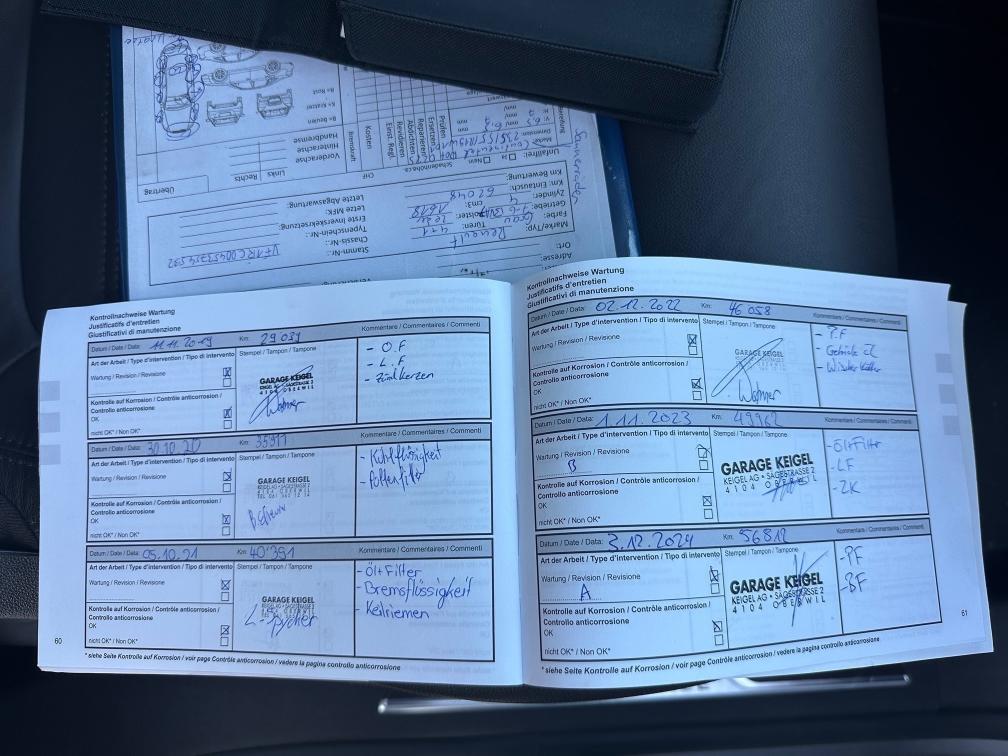 Kontrollnachweise Wartung
Justificatifs d'entretien
Giustificativi di manutenzione
Datum / Date / Data: 11.11.2019 Km: 29 031
Kommentare / Commentaires / Commenti
Art der Arbeit / Type d'intervention / Tipo di intervento
Stempel / Tampon / Tampone
Wartung / Revision / Revisione
Kontrolle auf Korrosion / Contrôle anticorrosion /
Controllo anticorrosione
OK
nicht OK* / Non OK*
GARAGE KEIGEL
KEIGEL AG • SÄGESTRASSE 2
4104 OBERWIL
- O.F
- L.F
- Zündkerzen
Datum / Date / Data: 30.10.20 Km:
Kommentare / Commentaires / Commenti
Art der Arbeit / Type d'intervention / Tipo di intervento
Stempel / Tampon / Tampone
Wartung / Revision / Revisione
Kontrolle auf Korrosion / Contrôle anticorrosion /
Controllo anticorrosione
OK
nicht OK* / Non OK*
GARAGE KEIGEL
KEIGEL AG • SÄGESTRASSE 2
4104 OBERWIL
- Kühlflüssigkeit
- Pollenfilter
Datum / Date / Data: 05.10.21 Km: 40'391
Kommentare / Commentaires / Commenti
Art der Arbeit / Type d'intervention / Tipo di intervento
Stempel / Tampon / Tampone
Wartung / Revision / Revisione
Kontrolle auf Korrosion / Contrôle anticorrosion /
Controllo anticorrosione
OK
nicht OK* / Non OK*
GARAGE KEIGEL
KEIGEL AG • SÄGESTRASSE 2
4104 OBERWIL
L. Spycher
- Öl + Filter
- Bremsflüssigkeit
- Keilriemen
60
* siehe Seite Kontrolle auf Korrosion / voir page Contrôle anticorrosion / vedere la pagina controllo anticorrosione
Kontrollnachweise Wartung
Justificatifs d'entretien
Giustificativi di manutenzione
Datum / Date / Data: 02.12.2022 Km: 46 058
Kommentare / Commentaires / Commenti
Art der Arbeit / Type d'intervention / Tipo di intervento
Stempel / Tampon / Tampone
Wartung / Revision / Revisione
Kontrolle auf Korrosion / Contrôle anticorrosion /
Controllo anticorrosione
OK
nicht OK* / Non OK*
GARAGE KEIGEL
- P.F
- Getriebe Öl
- Wischer
Datum / Date / Data: 1.11.2023 Km: 49962
Kommentare / Commentaires / Commenti
Art der Arbeit / Type d'intervention / Tipo di intervento
Stempel / Tampon / Tampone
Wartung / Revision / Revisione
B
Kontrolle auf Korrosion / Contrôle anticorrosion /
Controllo anticorrosione
OK
nicht OK* / Non OK*
GARAGE KEIGEL
KEIGEL AG • SÄGESTRASSE 2
4104 OBERWIL
- Öl+Filter
- LF
- ZK
Datum / Date / Data: 3.12.2024 Km: 56812
Kommentare / Commentaires / Commenti
Art der Arbeit / Type d'intervention / Tipo di intervento
Stempel / Tampon / Tampone
Wartung / Revision / Revisione
A
Kontrolle auf Korrosion / Contrôle anticorrosion /
Controllo anticorrosione
OK
nicht OK* / Non OK*
GARAGE KEIGEL
KEIGEL AG • SÄGESTRASSE 2
4104 OBERWIL
- PF
- BF
61
* siehe Seite Kontrolle auf Korrosion / voir page Contrôle anticorrosion / vedere la pagina controllo anticorrosione
Adresse:
Ort:
Marke/Typ: Renault
Farbe: Grau Türen: 4+1
Getriebe: Polster:
Zylinder: 4 cm3: 1618
Km Eintausch: 62048
Km Bewertung:
Stamm-Nr.:
Chassis-Nr.:
Typenschein-Nr.:
Erste Inverkehrsetzung:
Letzte MFK:
Letzte Abgaswartung:
Unfallfrei: Ja Nein Schadenhöhe ca. CHF
Übertrag
Vorderachse
Hinterachse
Handbremse
Links / Rechts
Bremskraft
Kosten
Einst. Regl.
Revidieren
Abdichten
Reparieren
Ersetzen
Prüfen
B= Beulen
K= Kratzer
R= Rost